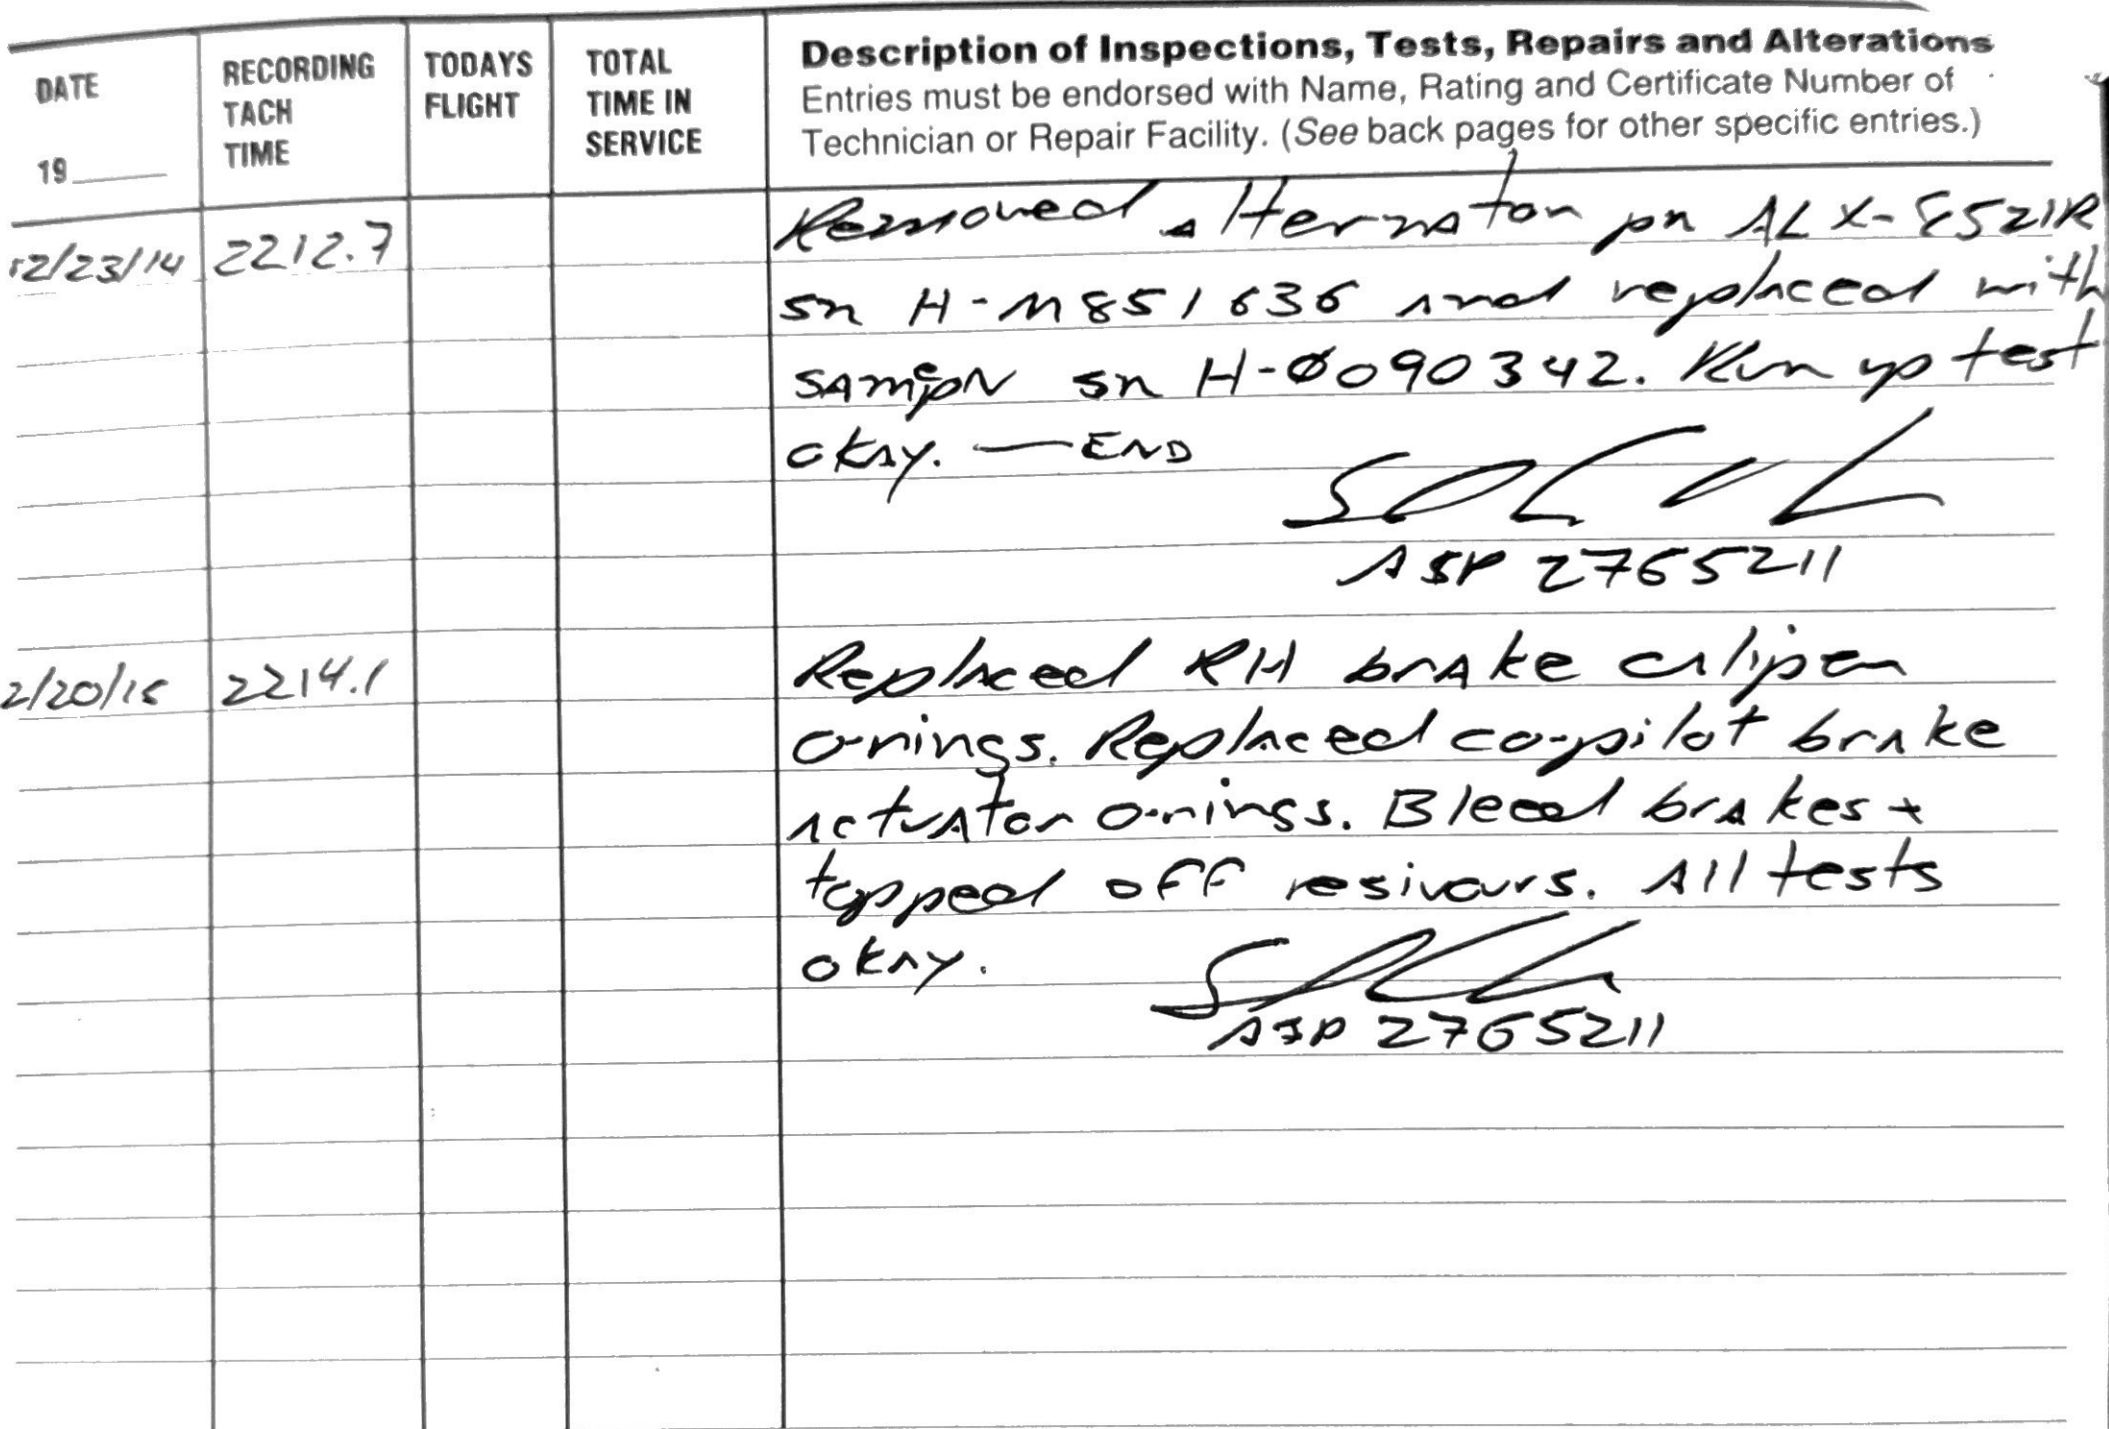 DATE
19____
RECORDING
TACH
TIME
TODAYS
FLIGHT
TOTAL
TIME IN
SERVICE
Description of Inspections, Tests, Repairs and Alterations
Entries must be endorsed with Name, Rating and Certificate Number of
Technician or Repair Facility. (See back pages for other specific entries.)
12/23/14 2212.7 Removed alternator pn ALX-8521R
sn H-M851636 and replaced with
SAME PN sn H-Ø090342. Run up test
okay. — END
A&P 2765211
2/20/15 2214.1 Replaced RH brake caliper
o-rings. Replaced co-pilot brake
actuator o-rings. Bleed brakes +
topped off resivours. All tests
okay.
A&P 2765211